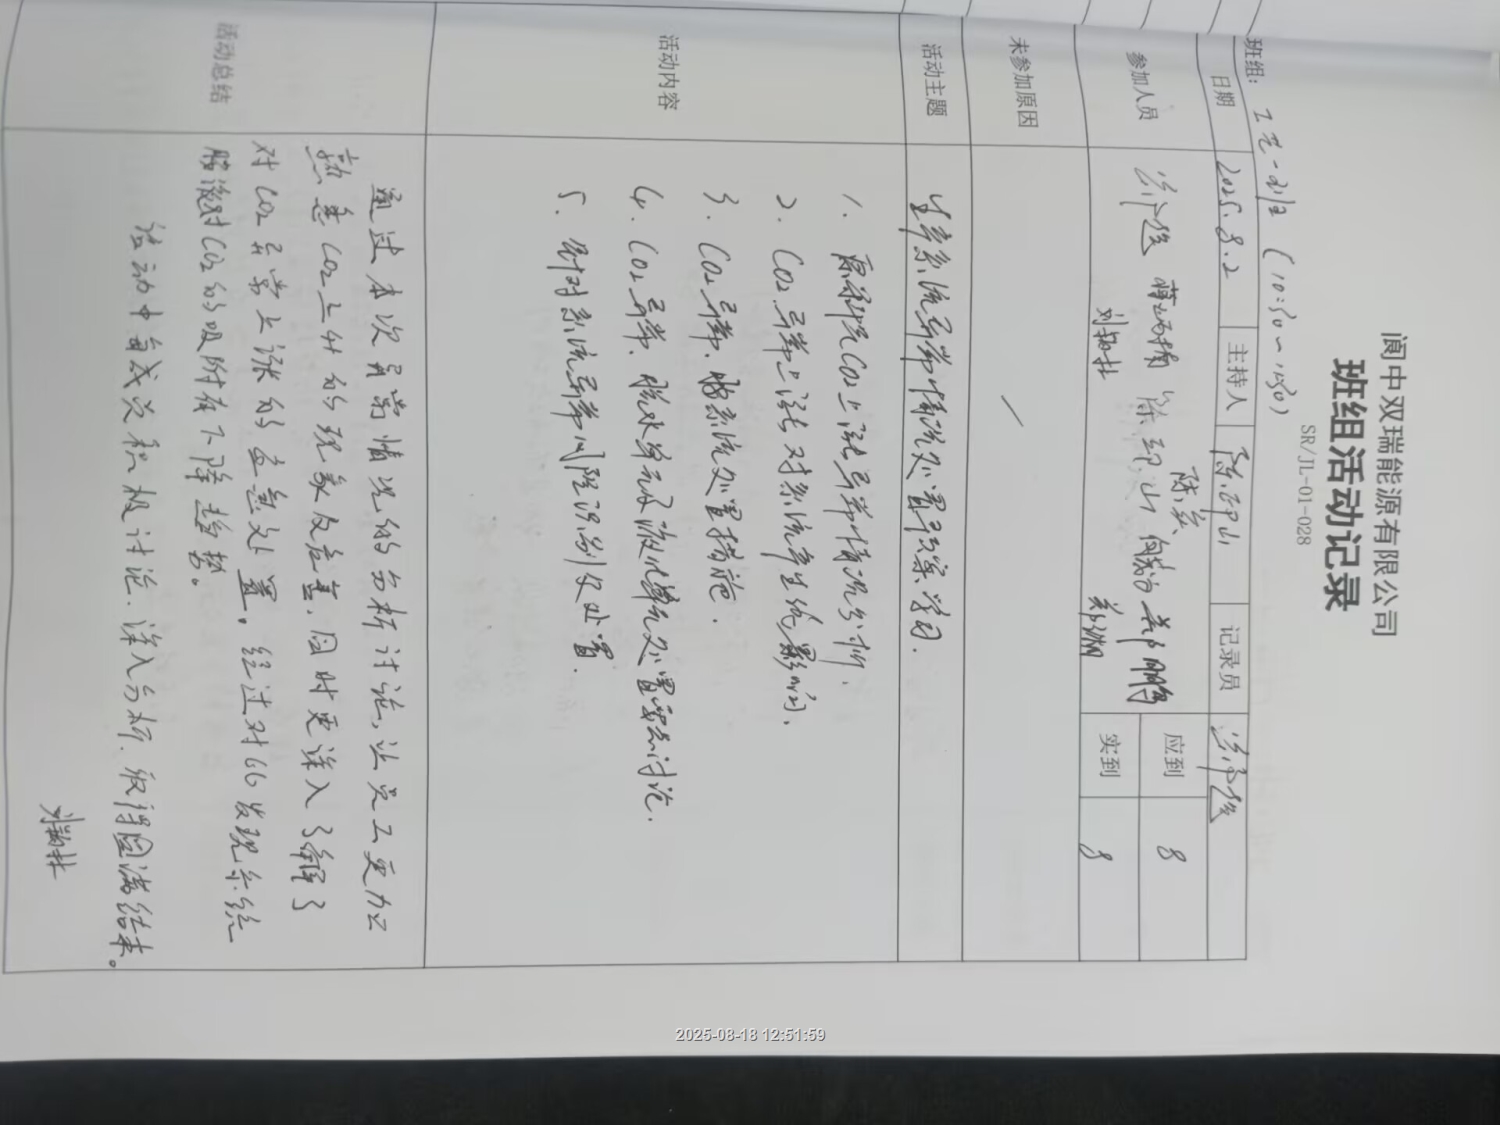 阆中双瑞能源有限公司
班组活动记录
SR/JL-01-028
班组：工艺一班（10:30～11:30）
日期 2025.8.2 主持人 陈印山 记录员
参加人员 陈印山
刘
应到 8
实到 8
未参加原因 /
活动主题 生产系统异常情况处置预案学习.
活动内容
1. 原料气CO2上涨异常情况分析.
2. CO2异常上涨对系统产生的影响.
3. CO2异常.脱系统处置措施.
4. CO2异常.脱水单元及液化单元处置要点讨论.
5. 针对系统异常风险识别及处置.
活动总结
通过本次异常情况的分析讨论,让员工更加
熟悉CO2上升的现象及危害,同时更深入了解了
对CO2异常上涨的应急处置。经过对比发现系统
胺液对CO2的吸附有下降趋势。
活动中每成员积极讨论.深入分析.取得圆满结果。
刘
2025-08-18 12:51:59